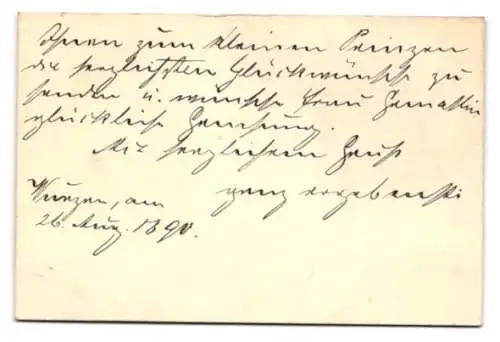 Ihnen zum kleinen Prinzen
die herzlichsten Glückwünsche zu
senden u. wünsche Frau Gemahlin
glückliche Genesung.
Mit herzlichem Gruß
ganz ergebenst
Wurzen, am
26. Aug. 1890.